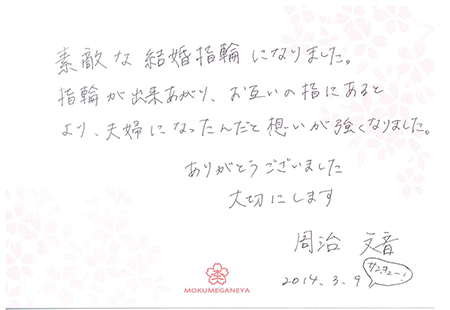 素敵な結婚指輪になりました。
指輪が出来あがり、お互いの指にあると
より、夫婦になったんだと想いが強くなりました。
ありがとうございました
大切にします
周治 文音
2014.3.9 サンキュー!
MOKUMEGANEYA